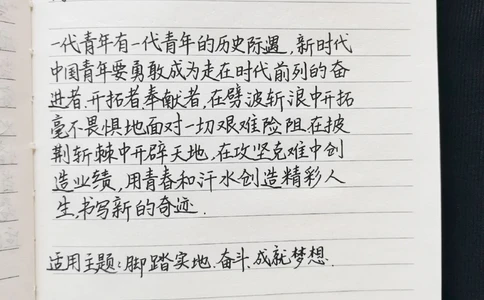 一代青年有一代青年的历史际遇,新时代
中国青年要勇敢成为走在时代前列的奋
进者.开拓者奉献者,在劈波斩浪中开拓
毫不畏惧地面对一切艰难险阻.在披
荆斩棘中开辟天地,在攻坚克难中创
造业绩,用青春和汗水创造精彩人
生.书写新的奇迹.
适用主题:脚踏实地.奋斗.成就梦想.